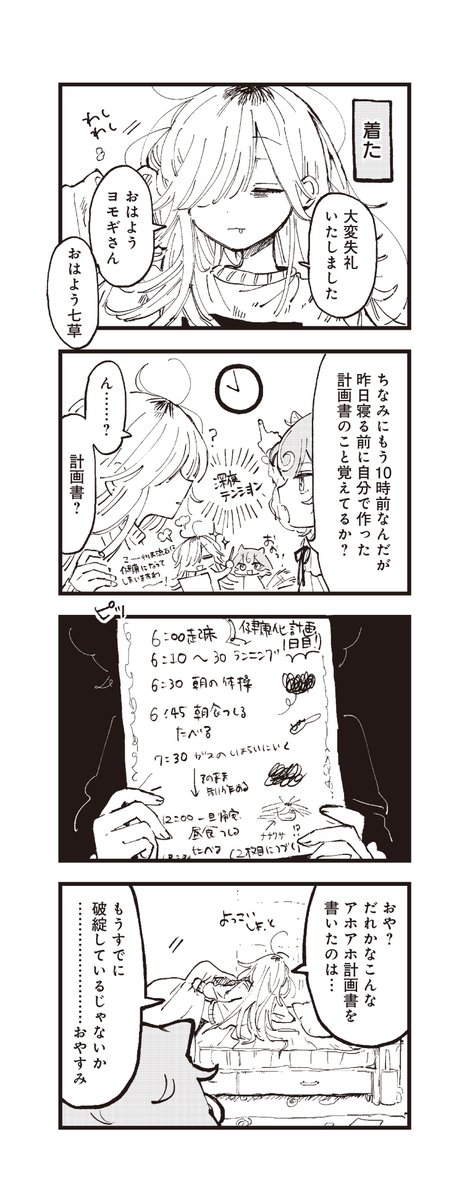 着た
大変失礼
いたしました
わしわし
おはよう
ヨモギさん
おはよう七草
ちなみにもう10時前なんだが
昨日寝る前に自分で作った
計画書のこと覚えてるか?
深夜
テンション
?
おお!
健康になって
しまいますわ
ん……?
計画書?
ピッ
健康化計画
1日目
6:00起床
6:10〜30ランニング
6:30 朝の体操
6:45 朝食つくる
たべる
7:30 ガスのしはらいにいく
12:00 一旦帰宅
昼食つくる
たべる
ナナクサ
!?
(2枚目につづく)
おや?
だれかなこんな
アホアホ計画書を
書いたのは…
よっこいしょっと
もうすでに
破綻しているじゃないか
……………………おやすみ